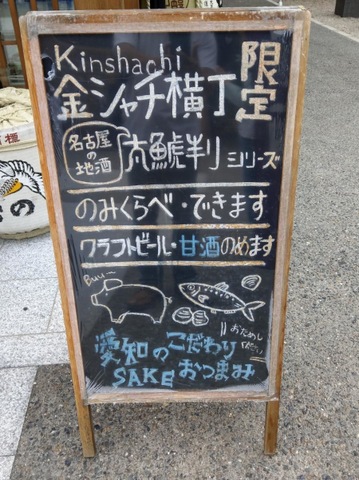 Kinshachi
金シャチ横丁
限定
名古屋の地酒
大鯱判りシリーズ
のみくらべ・できます
クラフトビール・甘酒のめます
Buu〜
おためし
愛知のこだわり
SAKEおつまみ